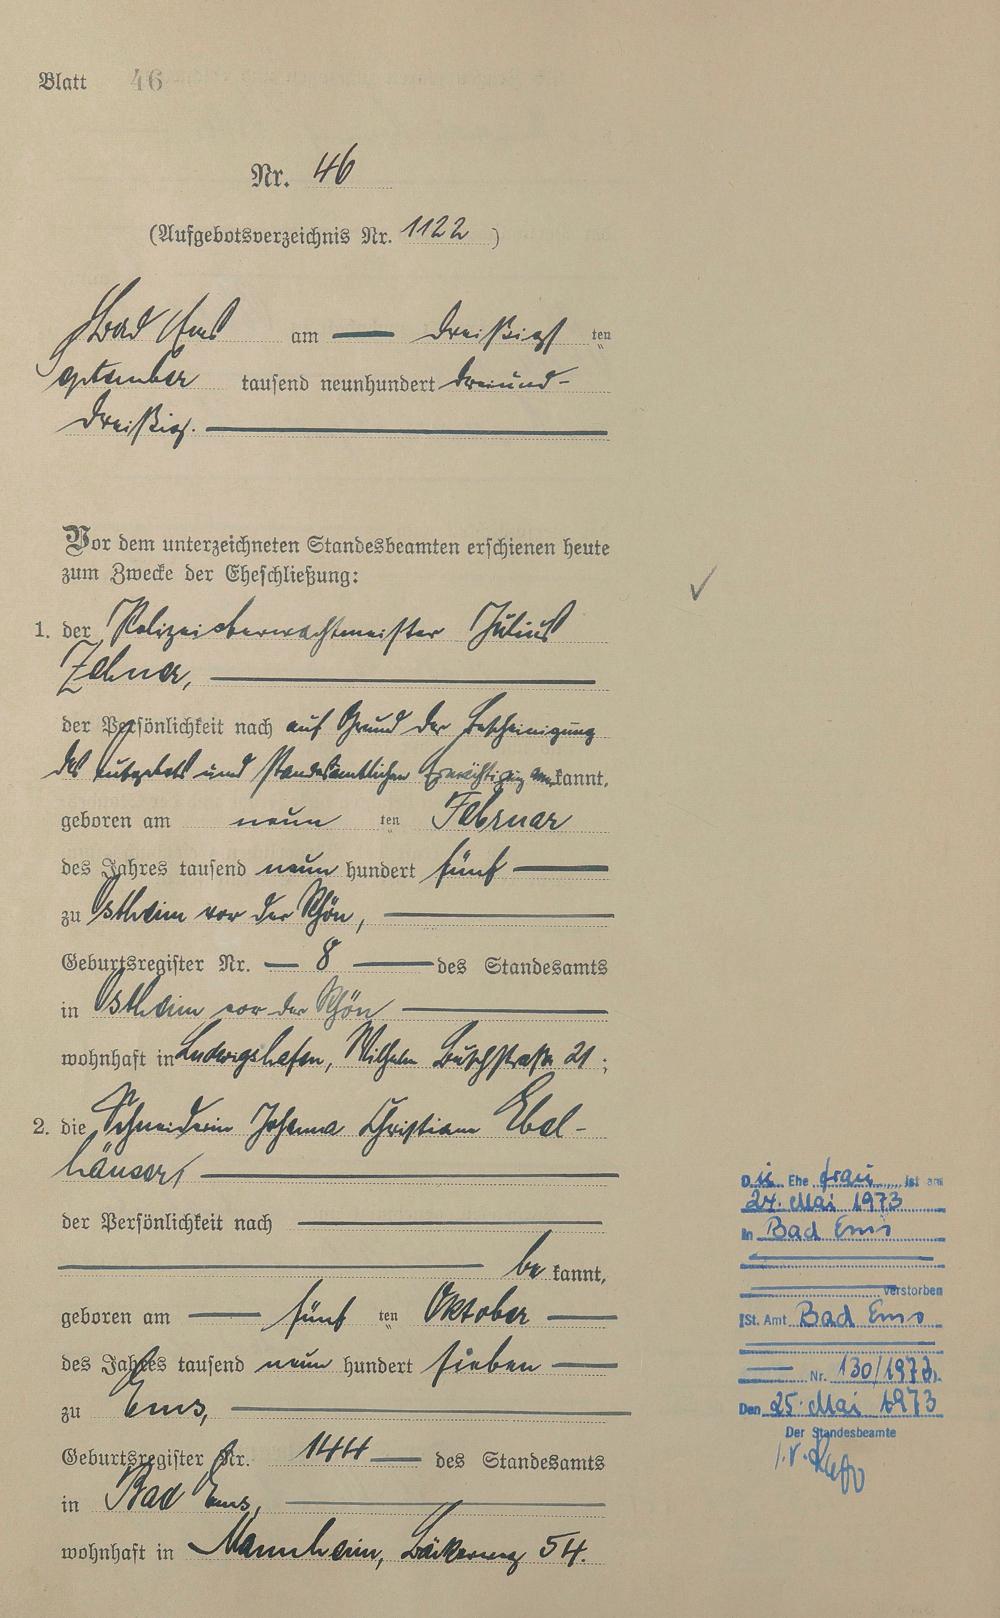 Blatt 46
Nr. 46
(Aufgebotsverzeichnis Nr. 1122)
Bad Ems am — dreißigs ten
September tausend neunhundert dreiund-
dreißig.
Vor dem unterzeichneten Standesbeamten erschienen heute
zum Zwecke der Eheschließung:
1. der Polizeioberwachtmeister Julius
Zehner,
der Persönlichkeit nach auf Grund der Bescheinigung
des Aufgebots und standesamtlichen Ermächtigung kannt,
geboren am neun ten Februar
des Jahres tausend neun hundert fünf —
zu Ostheim vor der Rhön,
Geburtsregister Nr. — 8 — des Standesamts
in Ostheim vor der Rhön —
wohnhaft in Ludwigshafen, Wilhelm Buschstraße 21;
2. die Schneiderin Johanna Christiane Ebel-
häuser,
der Persönlichkeit nach —
— be kannt,
geboren am — fünf ten Oktober —
des Jahres tausend neun hundert sieben —
zu Ems, —
Geburtsregister Nr. 144 — des Standesamts
in Bad Ems, —
wohnhaft in Mannheim, Bäckerweg 54.
Die Ehe frau ist am
24. Mai 1973
in Bad Ems
verstorben
St. Amt Bad Ems
Nr. 130/1973.
Den 25. Mai 1973
Der Standesbeamte
i.V.